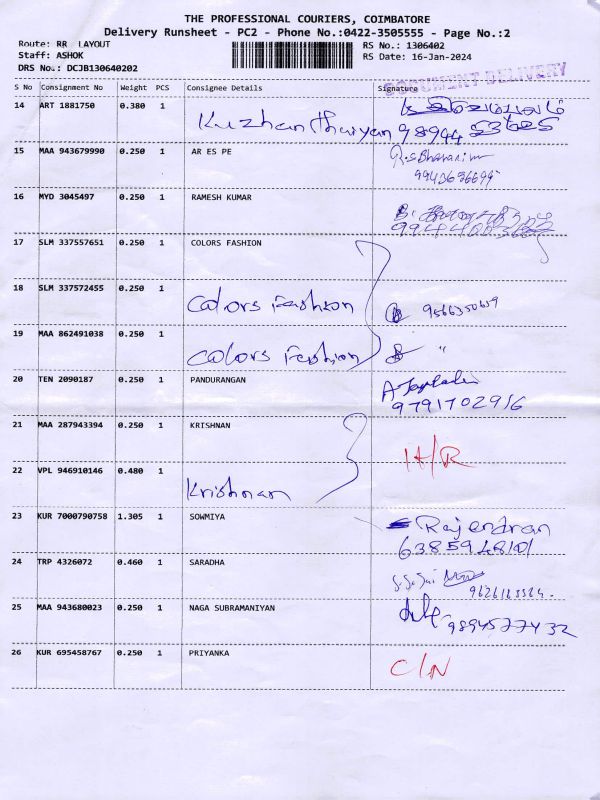 THE PROFESSIONAL COURIERS, COIMBATORE
Delivery Runsheet - PC2 - Phone No.:0422-3505555 - Page No.:2
Route: RR LAYOUT
Staff: ASHOK
DRS No.: DCJB130640202
RS No.: 1306402
RS Date: 16-Jan-2024
DOCUMENT DELIVERY
S No Consignment No Weight PCS Consignee Details Signature
14 ART 1881750 0.380 1
Kuzhanthaiyan 98944
15 MAA 943679990 0.250 1 AR ES PE
16 MYD 3045497 0.250 1 RAMESH KUMAR
17 SLM 337557651 0.250 1 COLORS FASHION
18 SLM 337572455 0.250 1 Colors Fashion
19 MAA 862491038 0.250 1 Colors Fashion "
20 TEN 2090187 0.250 1 PANDURANGAN
9791702916
21 MAA 287943394 0.250 1 KRISHNAN
H/R
22 VPL 946910146 0.480 1 Krishnan
23 KUR 7000790758 1.305 1 SOWMIYA Rajendran
6385948101
24 TRP 4326072 0.460 1 SARADHA
25 MAA 943680023 0.250 1 NAGA SUBRAMANIYAN
9894577432
26 KUR 695458767 0.250 1 PRIYANKA C/N